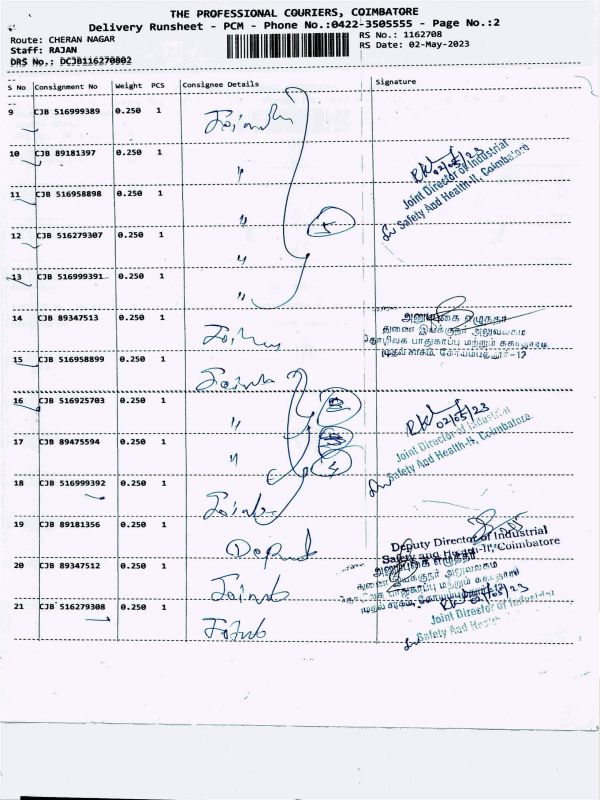 THE PROFESSIONAL COURIERS, COIMBATORE
Delivery Runsheet - PCM - Phone No.:0422-3505555 - Page No.:2
Route: CHERAN NAGAR
RS No.: 1162708
Staff: RAJAN
RS Date: 02-May-2023
DRS No.: DCJB116270802
S No Consignment No Weight PCS Consignee Details Signature
9 CJB 516999389 0.250 1
10 CJB 89181397 0.250 1 "
02/05/23
Joint Director of Industrial
Safety And Health-II, Coimbatore
11 CJB 516958898 0.250 1 "
5
12 CJB 516279307 0.250 1 "
13 CJB 516999391 0.250 1 "
14 CJB 89347513 0.250 1
துணை இயக்குநர் அலுவலகம்
தொழிலக பாதுகாப்பு மற்றும் சுகாதாரம்
15 CJB 516958899 0.250 1
16 CJB 516925703 0.250 1 "
02/05/23
Joint Director of Industrial
Safety And Health-II, Coimbatore
17 CJB 89475594 0.250 1 "
4
18 CJB 516999392 0.250 1
19 CJB 89181356 0.250 1
Deputy Director of Industrial
Safety and Health-II, Coimbatore
20 CJB 89347512 0.250 1
21 CJB 516279308 0.250 1
Joint Director Of Industrial
Safety And Health